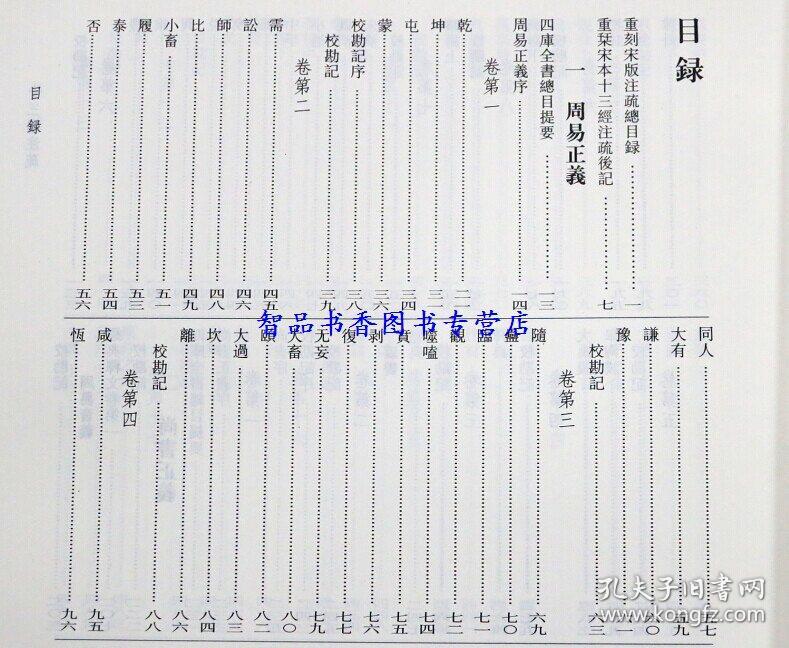 目録
重刻宋版注疏總目録 一
重栞宋本十三經注疏後記 七
一 周易正義
四庫全書總目提要 一三
周易正義序 一四
卷第一
乾 二一
坤 三一
屯 三四
蒙 三六
校勘記序 三八
校勘記 三九
卷第二
需 四五
訟 四六
師 四八
比 四九
小畜 五一
履 五三
泰 五四
否 五六
同人 五七
大有 五九
謙 六〇
豫 六一
校勘記 六三
卷第三
隨 六九
蠱 七〇
臨 七一
觀 七二
噬嗑 七四
賁 七五
剥 七六
復 七七
无妄 七九
大畜 八〇
頤 八二
大過 八三
坎 八四
離 八六
校勘記 八八
卷第四
咸 九五
恆 九六
目録
智品书香图书专营店
孔夫子旧书网
www.kongfz.com